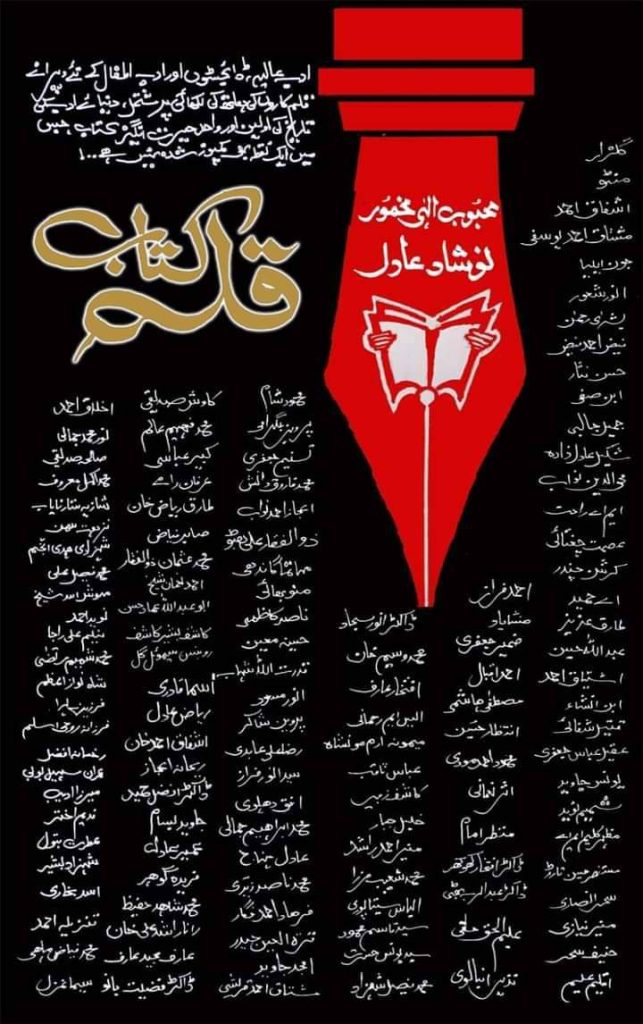 ادبِ عالیہ، ڈائجسٹوں اور ادب اطفال کے نئے و پرانے
قلم کاروں کی ہاتھ کی لکھائی پر مشتمل، دنیائے ادب کی
تاریخ کی اولین اور واحد حیرت انگیز کتاب جس
میں ایک لفظ بھی کمپوز شدہ نہیں ہے۔۔۔!
قلم کتاب
محبوب الٰہی مخمور
نوشاد عادل
گلزار
منٹو
اشفاق احمد
مشتاق احمد یوسفی
جون ایلیا
انور شعور
بشریٰ رحمٰن
فیض احمد فیض
حسن نثار
ابن صفی
جمیل جالبی
شکیل عادل زادہ
محی الدین نواب
ایم اے راحت
عصمت چغتائی
کرشن چندر
اے حمید
طارق عزیز
عبداللہ حسین
اشتیاق احمد
ابن انشاء
تمثیل شفائی
عقیل عباس جعفری
یونس جاوید
شمیم نوید
مظہر کلیم ایم اے
مستنصر حسین تارڑ
سحر انصاری
منیر نیازی
حنیف سحر
اقلیم علیم
احمد فراز
منشا یاد
ضمیر جعفری
احمد اقبال
مصطفیٰ ہاشمی
انتظار حسین
محمود احمد مودی
اثر نعمانی
منظر امام
ڈاکٹر افتخار کھوکھر
ڈاکٹر عبدالرب بھٹی
علیم الحق حقی
نذیر انبالوی
ڈاکٹر انور سجاد
محمد وسیم خان
افتخار عارف
الیس ایم رحمانی
میمونہ ارم مونشاہ
عباس ثاقب
کاشف زبیر
خلیل جبار
منیر احمد راشد
محمد شعیب مرزا
الیاس سیتاپوری
سید قاسم محمود
سید یونس حسرت
محمد فیصل شہزاد
محمود شام
پرویز بلگرامی
تسنیم جعفری
محمد فاروق دانش
اعجاز احمد نواب
ذوالفقار علی بھٹو
مہاتما گاندھی
منو بھائی
ناصر کاظمی
حسینہ معین
قدرت اللہ شہاب
انور مسعود
پروین شاکر
رضا علی عابدی
سید انور فراز
افق دہلوی
محمد ابراہیم جمالی
عادل منہاج
محمد ناصر زیدی
فرہاد احمد فگار
قرۃ العین حیدر
امجد جاوید
مشتاق احمد قریشی
کاوش صدیقی
محمد فہیم عالم
کبیر عباسی
عرفان رامے
طارق ریاض خان
صابر فیاض
محمد عثمان ذوالفقار
احمد نعمان شیخ
ابو عبداللہ محمد حسن
کاشف بشیر کاشف
اسما قادری
ریاض عادل
اشفاق احمد خان
ریحانہ اعجاز
ڈاکٹر افضل حمید
جاوید بسام
ضمیر عادل
فریدہ گوہر
محمد شاہد حفیظ
رانا راشد علی خان
عارف مجید عارف
ڈاکٹر فضیلت بانو
اخلاق احمد
نور محمد جمالی
صالحہ صدیقی
محمد اکمل معروف
شازیہ ستار نایاب
محمد فیصل علی
مہوش اسد شیخ
نوید احمد
نیلم علی راجا
محمد شمیم مرتضیٰ
شاہ نواز اعظم
فرزانہ روحی اسلم
رخسانہ افضل
میرزا ادیب
ندیم اختر
عطرت بتول
شہزاد بشیر
اسد بخاری
تنزیلہ احمد
محمد فیاض ماہی
سیما غزل